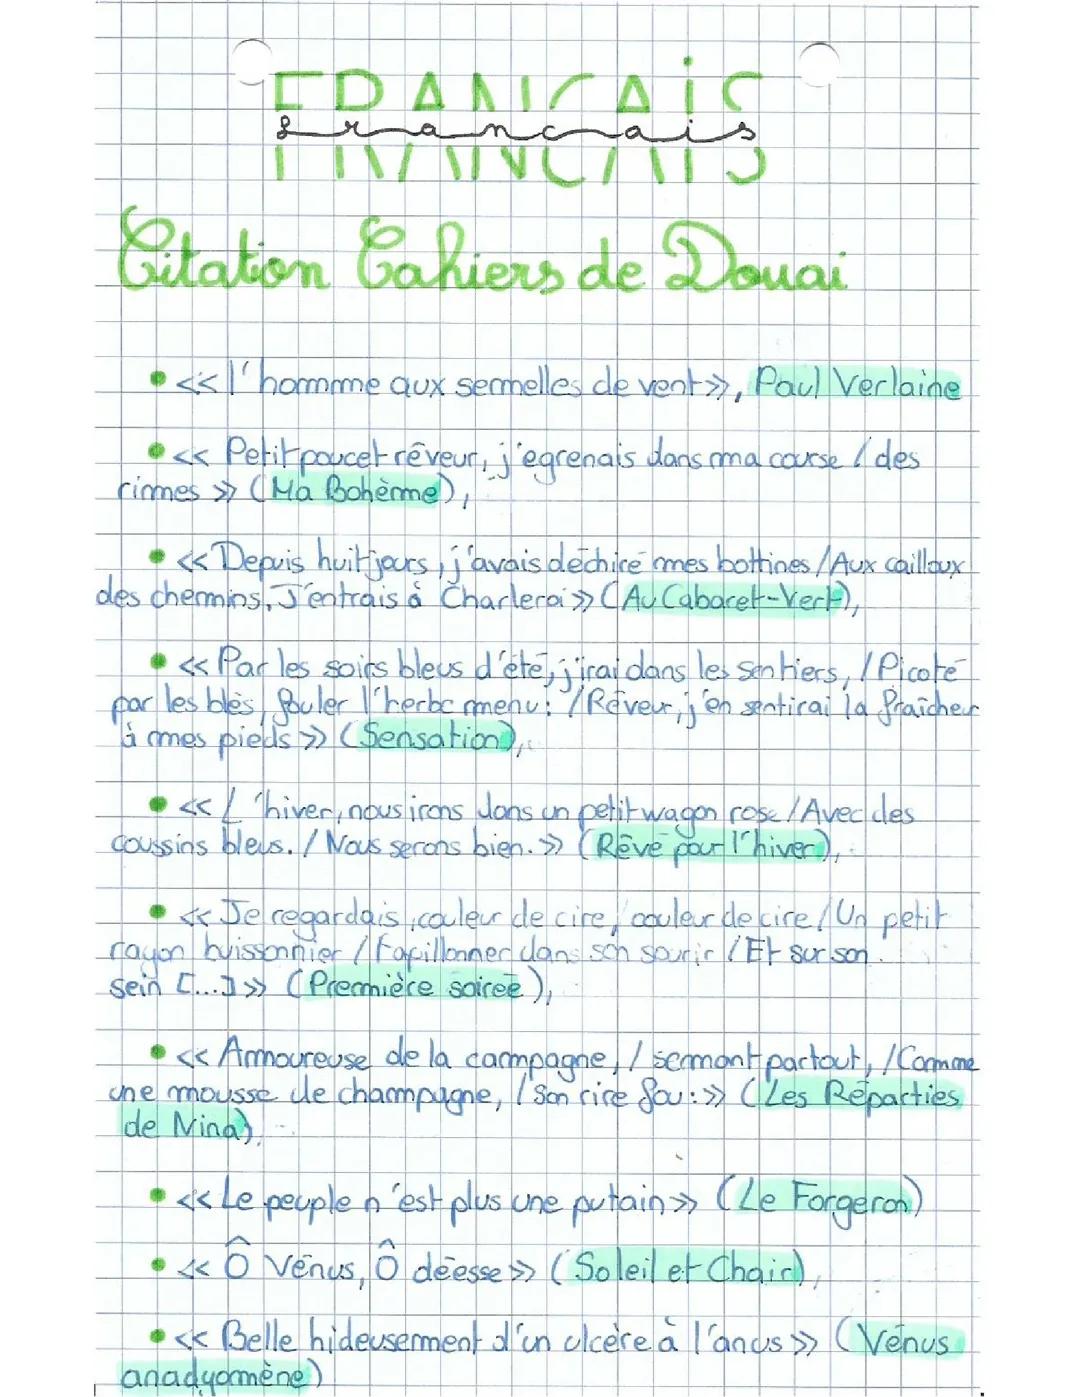 FRANCAIS
francais
Citation Cahiers de Douai
• << l'homme aux semelles de vent >>, Paul Verlaine
• << Petit poucet rêveur, j'egrenais dans ma course / des
rimes >> (Ma Bohème),
• << Depuis huit jours, j'avais déchiré mes bottines / Aux cailloux
des chemins. J'entrais à Charleroi >> (Au Cabaret-Vert),
• << Par les soirs bleus d'été, j'irai dans les sentiers, / Picoté
par les blés, fouler l'herbe menu: / Rêveur, j'en sentirai la fraîcheur
à mes pieds >> (Sensation),
• << L'hiver, nous irons dans un petit wagon rose / Avec des
coussins bleus. / Nous serons bien. >> (Rêvé pour l'hiver),
• << Je regardais, couleur de cire, couleur de cire / Un petit
rayon buissonnier / Papillonner dans son sourir / Et sur son
sein [...] >> (Première soireé),
• << Amoureuse de la campagne, / semant partout, / Comme
une mousse de champagne, / Son rire fou: >> (Les Réparties
de Nina),
• << Le peuple n'est plus une putain >> (Le Forgeron)
• << Ô Vénus, Ô déesse >> (Soleil et Chair),
• << Belle hideusement d'un ulcère à l'anus >> (Vénus
anadyomène)